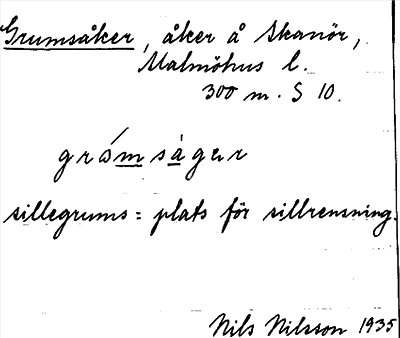 Grumsåker, åker å Skanör,
Malmöhus l.
300 m. S 10.
gró̵msågar
sillegrums = plats för sillrensning.
Nils Nilsson 1935